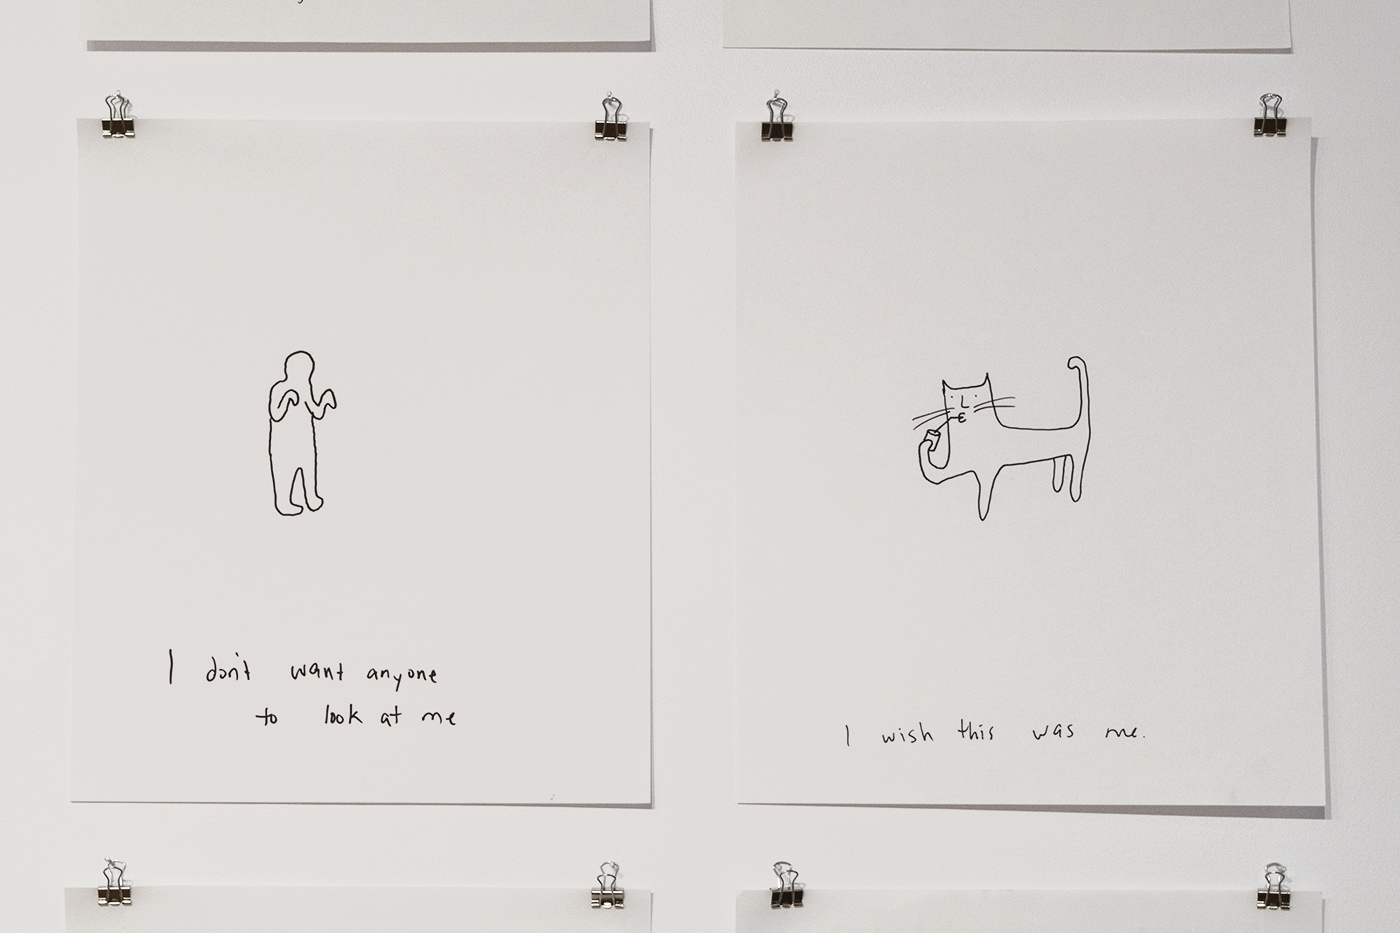 I don't want anyone
to look at me
I wish this was me.